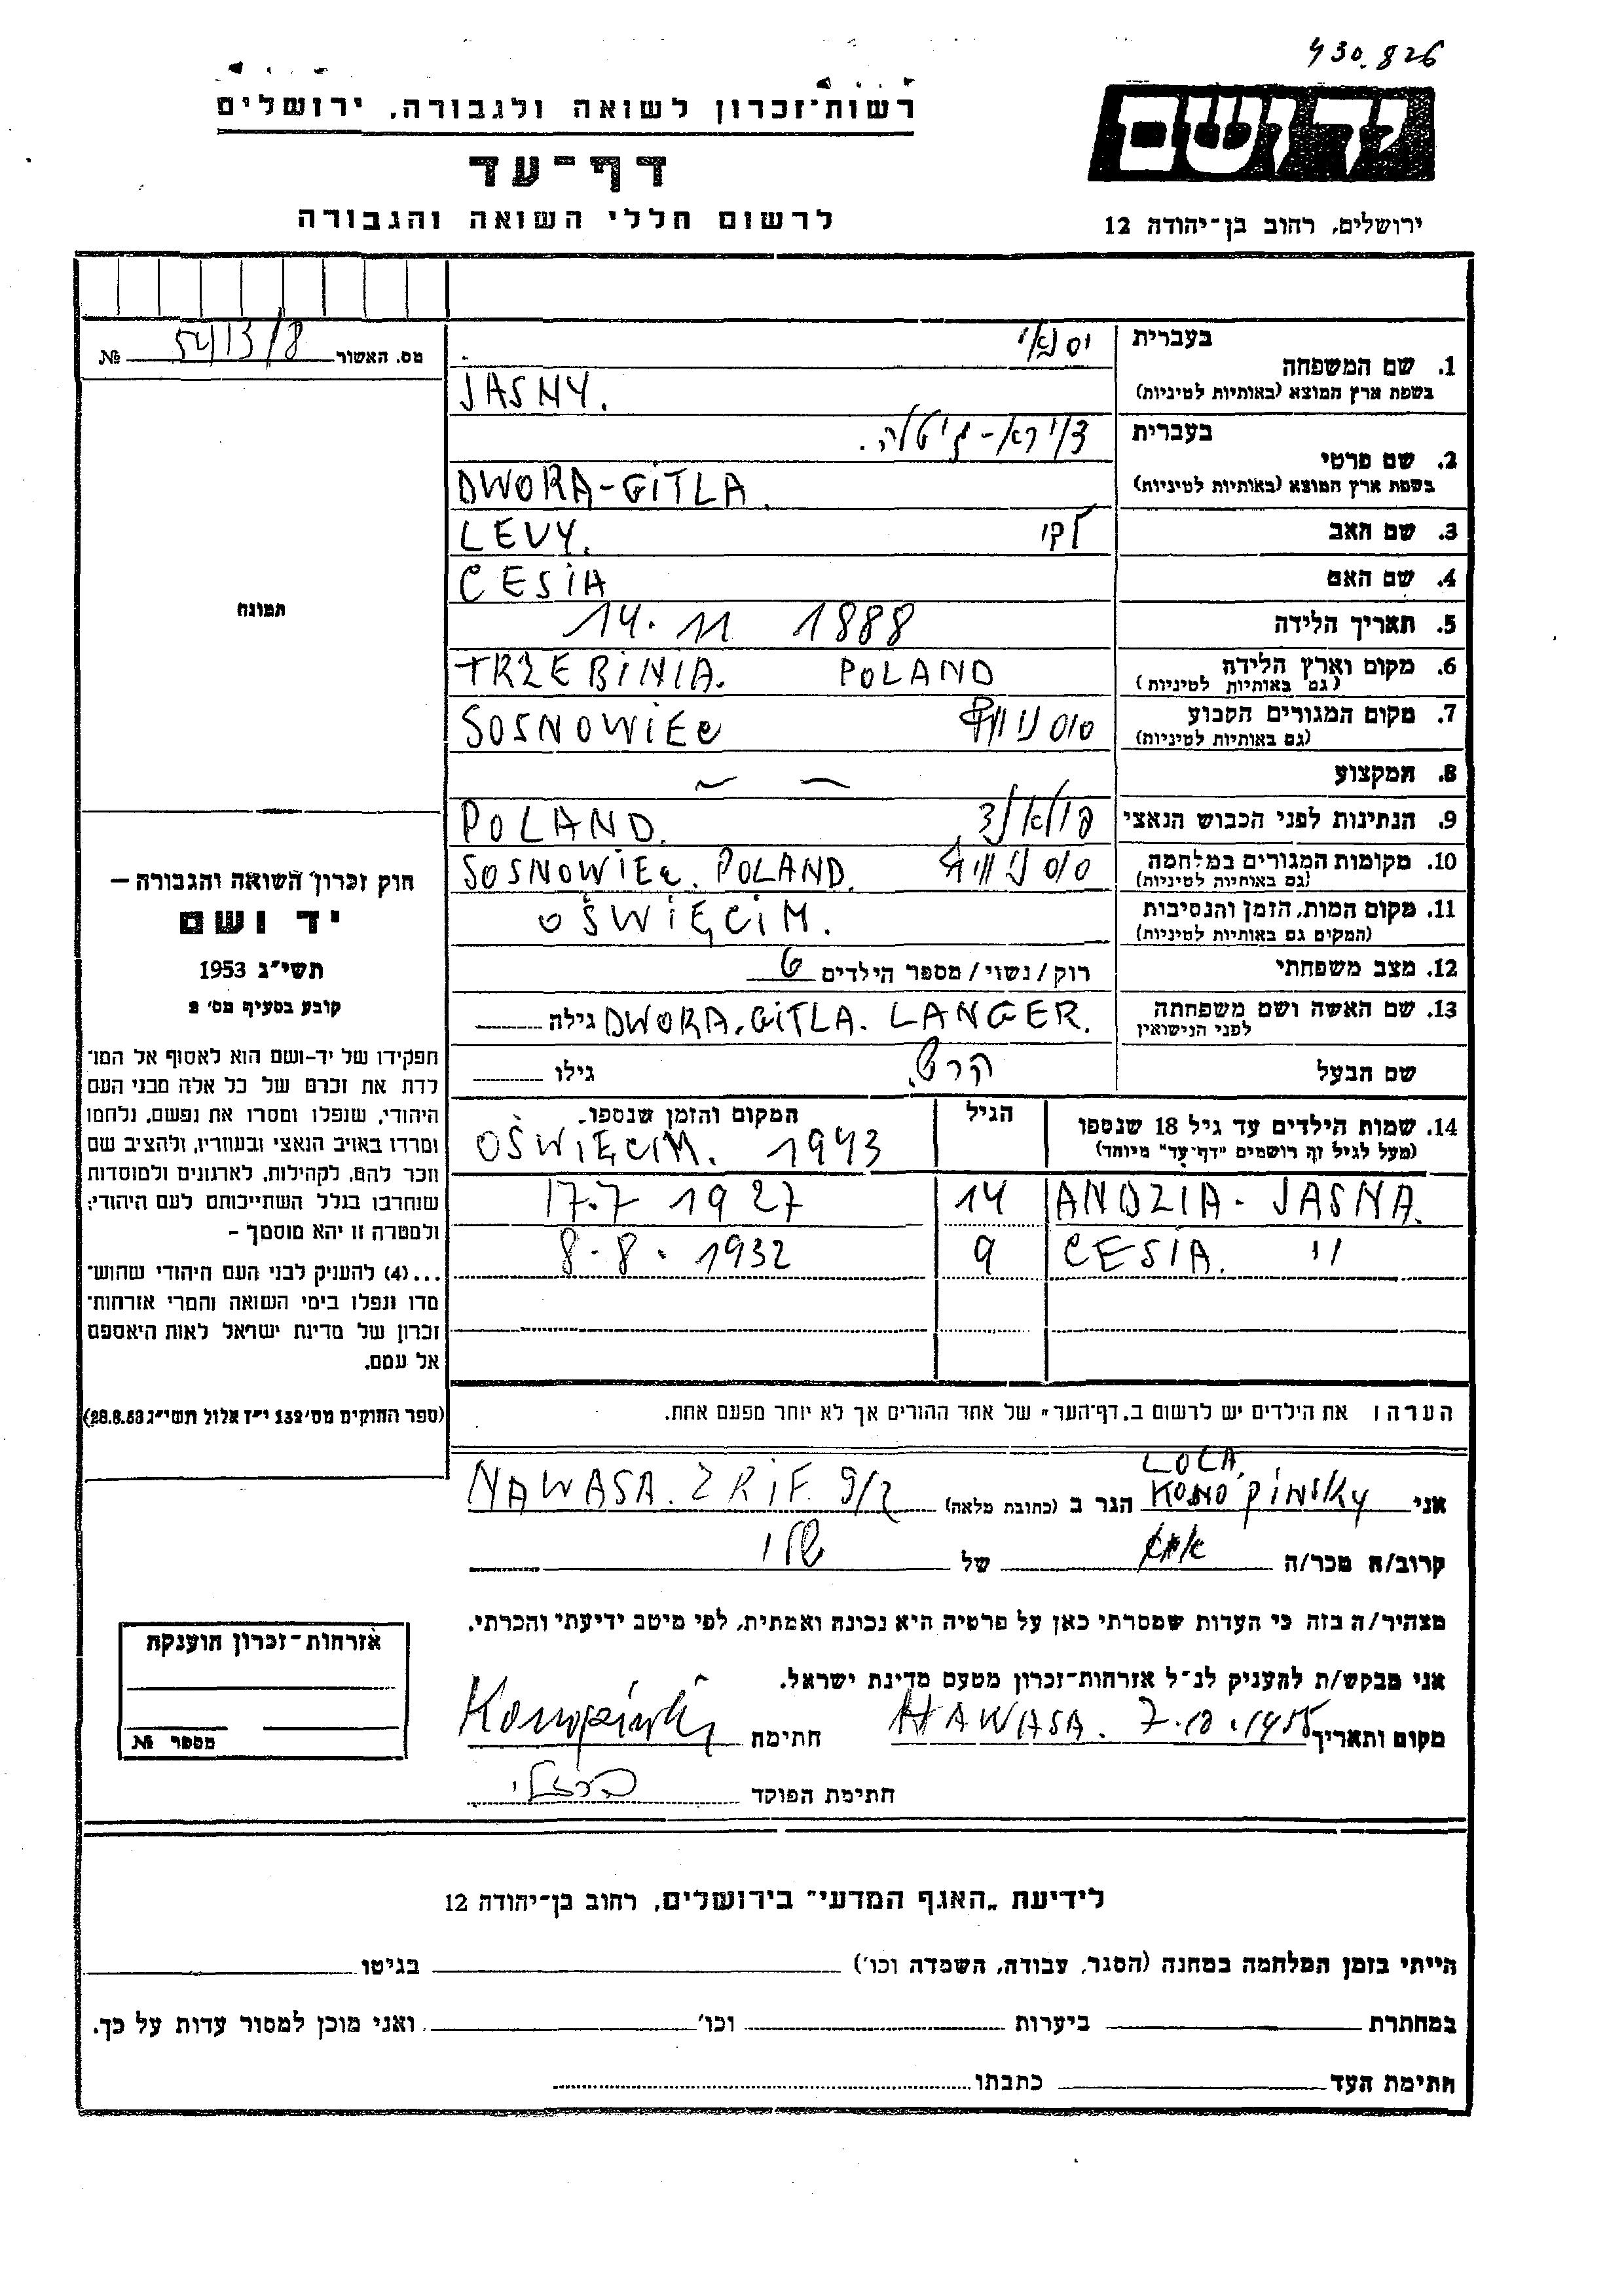 430.826
רשות־זכרון לשואה ולגבורה, ירושלים
יד ושם
דף־עד
לרשום חללי השואה והגבורה
ירושלים, רחוב בן־יהודה 12
מס. האשור № 5413/8
1. שם המשפחה
בעברית
(בשפת ארץ המוצא (באותיות לטיניות
JASNY.
2. שם פרטי
בעברית
(בשפת ארץ המוצא (באותיות לטיניות
DWORA-GITLA.
3. שם האב לוי LEVY.
4. שם האם CESIA
5. תאריך הלידה 14. 11 1888
6. מקום וארץ הלידה TRZEBINIA. POLAND
(גם באותיות לטיניות)
7. מקום המגורים הקבוע SOSNOWIEC
(גם באותיות לטיניות)
8. המקצוע — —
9. הנתינות לפני הכבוש הנאצי POLAND.
10. מקומות המגורים במלחמה SOSNOWIEC. POLAND.
(גם באותיות לטיניות)
11. מקום המות, הזמן והנסיבות OŚWIĘCIM.
(המקום גם באותיות לטיניות)
12. מצב משפחתי רוק/נשוי/מספר הילדים 6
13. שם האשה ושם משפחתה DWORA.GITLA. LANGER. גילה
לפני הנישואין
שם הבעל גילו
14. שמות הילדים עד גיל 18 שנספו הגיל המקום והזמן שנספו
(מעל לגיל זה רושמים "דף־עד" מיוחד) OŚWIĘCIM. 1943
ANDZIA - JASNA. 14 17.7 1927
CESIA. " 9 8.8. 1932
הערה: את הילדים יש לרשום ב„דף־העד" של אחד ההורים אך לא יותר מפעם אחת.
תמונה
חוק זכרון השואה והגבורה —
יד ושם
תשי"ג 1953
קובע בסעיף מס' 2
תפקידו של יד-ושם הוא לאסוף אל המו־
לדת את זכרם של כל אלה מבני העם
היהודי, שנפלו ומסרו את נפשם, נלחמו
ומרדו באויב הנאצי ובעוזריו, ולהציב שם
וזכר להם, לקהילות, לארגונים ולמוסדות
שנחרבו בגלל השתייכותם לעם היהודי;
ולמטרה זו יהא מוסמך —
...(4) להעניק לבני העם היהודי שהוש־
מדו ונפלו בימי השואה והמרי אזרחות־
זכרון של מדינת ישראל לאות היאספם
אל עמם.
(ספר החוקים מס' 132 י"ז אלול תשי"ג 28.8.53)
LOLA.
אני KONOPINSKY הגר ב (כתובת מלאה) NAWASA. ZRIF. 9/2
קרוב/ה מכר/ה של שלי
מצהיר/ה בזה כי העדות שמסרתי כאן על פרטיה היא נכונה ואמתית, לפי מיטב ידיעתי והכרתי.
אני מבקש/ת להעניק לנ"ל אזרחות־זכרון מטעם מדינת ישראל.
מקום ותאריך NAWASA. 7.10.1955 חתימת
חתימת הפוקד
אזרחות־זכרון הוענקה
מספר №
לידיעת „האגף המדעי" בירושלים, רחוב בן־יהודה 12
הייתי בזמן המלחמה במחנה (הסגר, עבודה, השמדה וכו') בגיטו
במחתרת ביערות וכו' ואני מוכן למסור עדות על כך.
חתימת העד כתבתו